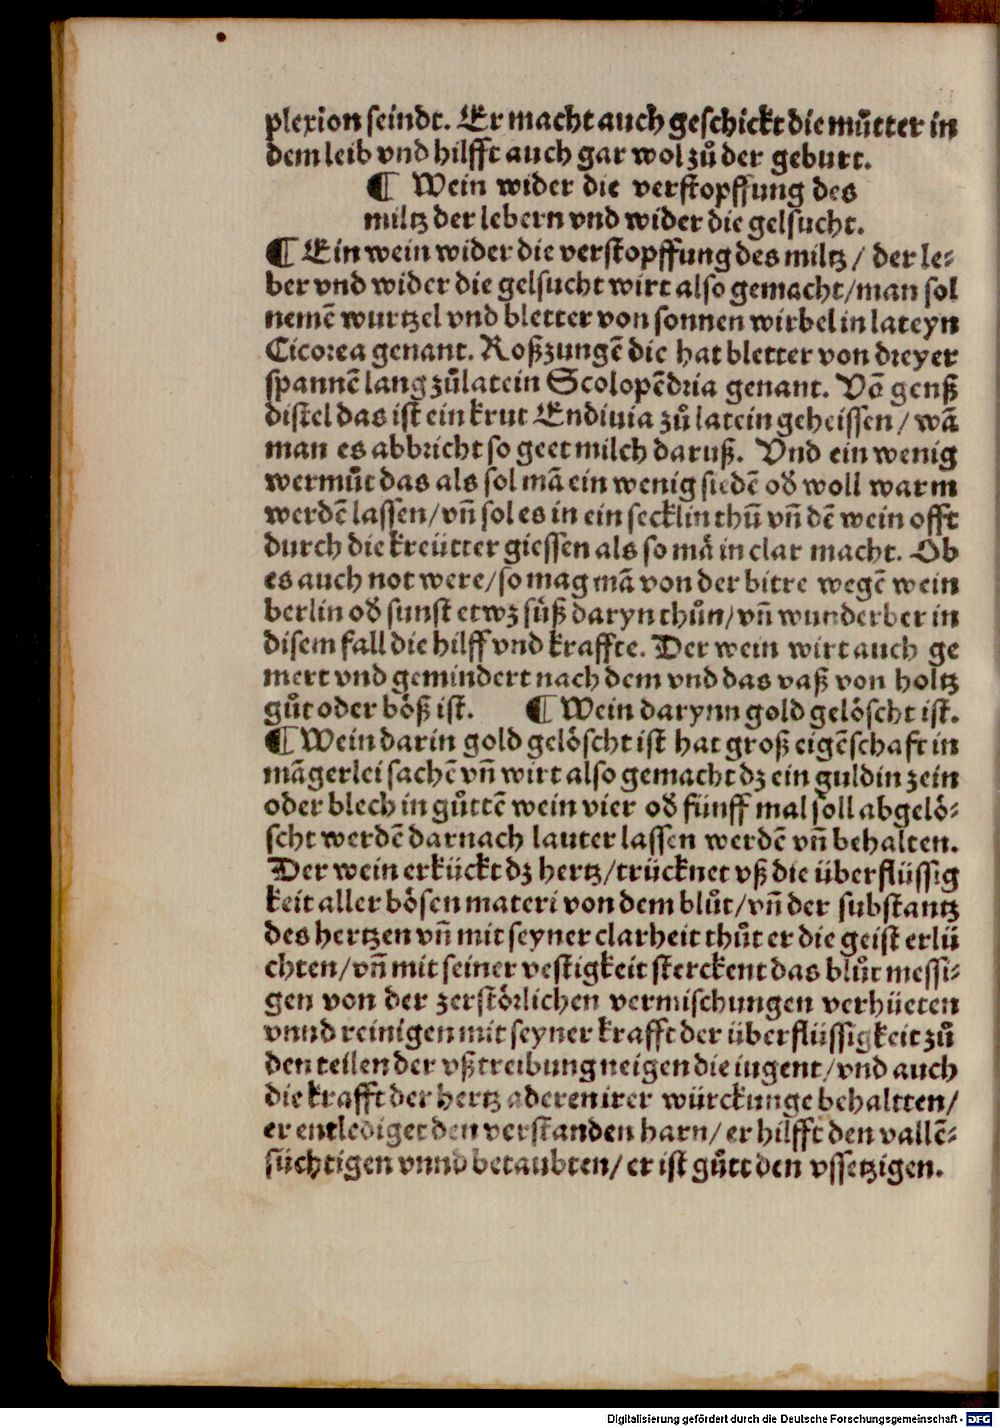 plexion seindt. Er macht auch geschickt die můtter in
dem leib vnd hilfft auch gar wol zů der geburt.
¶ Wein wider die verstopffung des
miltz der lebern vnd wider die gelsucht.
¶ Ein wein wider die verstopffung des miltz / der le⸗
ber vnd wider die gelsucht wirt also gemacht / man sol
nemē wurtzel vnd bletter von sonnen wirbel in lateyn
Cicorea genant. Roßzungē die hat bletter von dreyer
spannē lang zů latein Scolopēdria genant. Vō genß
distel das ist ein krut Endiuia zů latein geheissen / wā
man es abbricht so geet milch daruß. Vnd ein wenig
wermůt das als sol mā ein wenig siedē od woll warm
werdē lassen / vñ sol es in ein secklin thů vñ dē wein offt
durch die kreütter giessen als so mā in clar macht. Ob
es auch not were / so mag mā von der bitre wegē wein
berlin od sunst etwz süß daryn thůn / vñ wunderber in
disem fall die hilff vnd kraffte. Der wein wirt auch ge
mert vnd gemindert nach dem vnd das vaß von holtz
gůt oder böß ist. ¶ Wein darynn gold gelöscht ist.
¶ Wein darin gold gelöscht ist hat groß eigēschafft in
māgerlei sachē vñ wirt also gemacht dz ein guldin zein
oder blech in gůttē wein vier od fünff mal soll abgelö⸗
scht werdē darnach lauter lassen werdē vñ behalten.
Der wein erkückt dz hertz / trücknet vß die überflüssig
keit aller bösen materi von dem blůt / vñ der substantz
des hertzen vñ mit seyner clarheit thůt er die geist erlü
chten / vñ mit seiner vestigkeit sterckent das blůt messi⸗
gen von der zerstörlichen vermischungen verhüeten
vnnd reinigen mit seyner krafft der überflüssigkeit zů
den teilen der vßtreibung neigen die iugent / vnd auch
die krafft der hertz aderen irer würckunge behaltten /
er entlediget den verstanden harn / er hilfft den vallē⸗
süchtigen vnnd betaubten / er ist gůtt den vssetzigen.
Digitalisierung gefördert durch die Deutsche Forschungsgemeinschaft - DFG